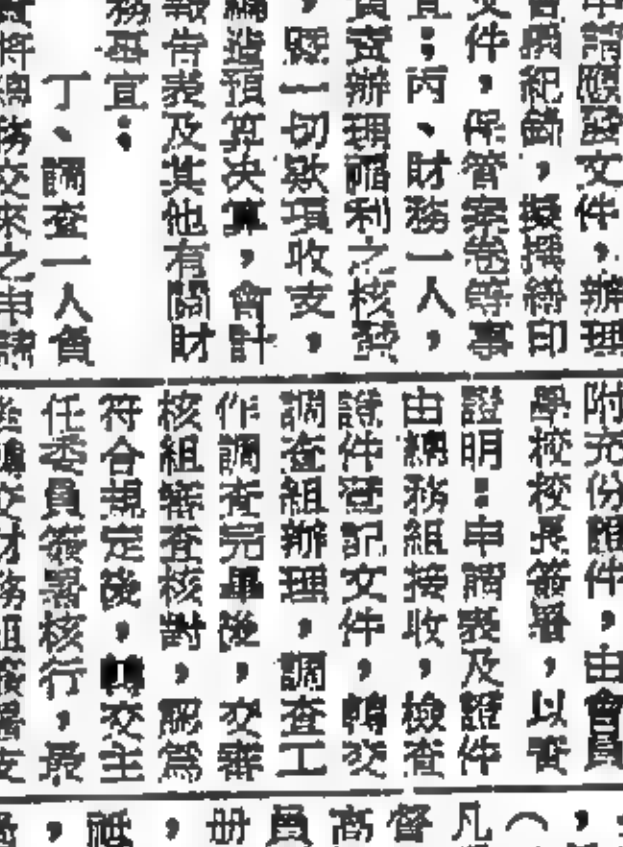 申請願發文件，辦理
會議紀錄，擬撰繕印
文件，保管案卷等事
宜：丙、財務一人，
負責辦理福利之核發
，暨一切款項收支，
編造預算決算，會計
報告表及其他有關財
務事宜：
丁、調查一人負
將總務交來之申請
附充份證件，由會員
學校校長簽署，以資
證明：申請表及證件
由總務組接收，檢查
證件登記文件，轉交
調查組辦理，調查工
作調查完畢後，交審
核組審查核對，認為
符合規定後，轉交主
任委員簽署核行，最
後轉交財務組簽署支
凡
督
高
員
冊
，
祗
，